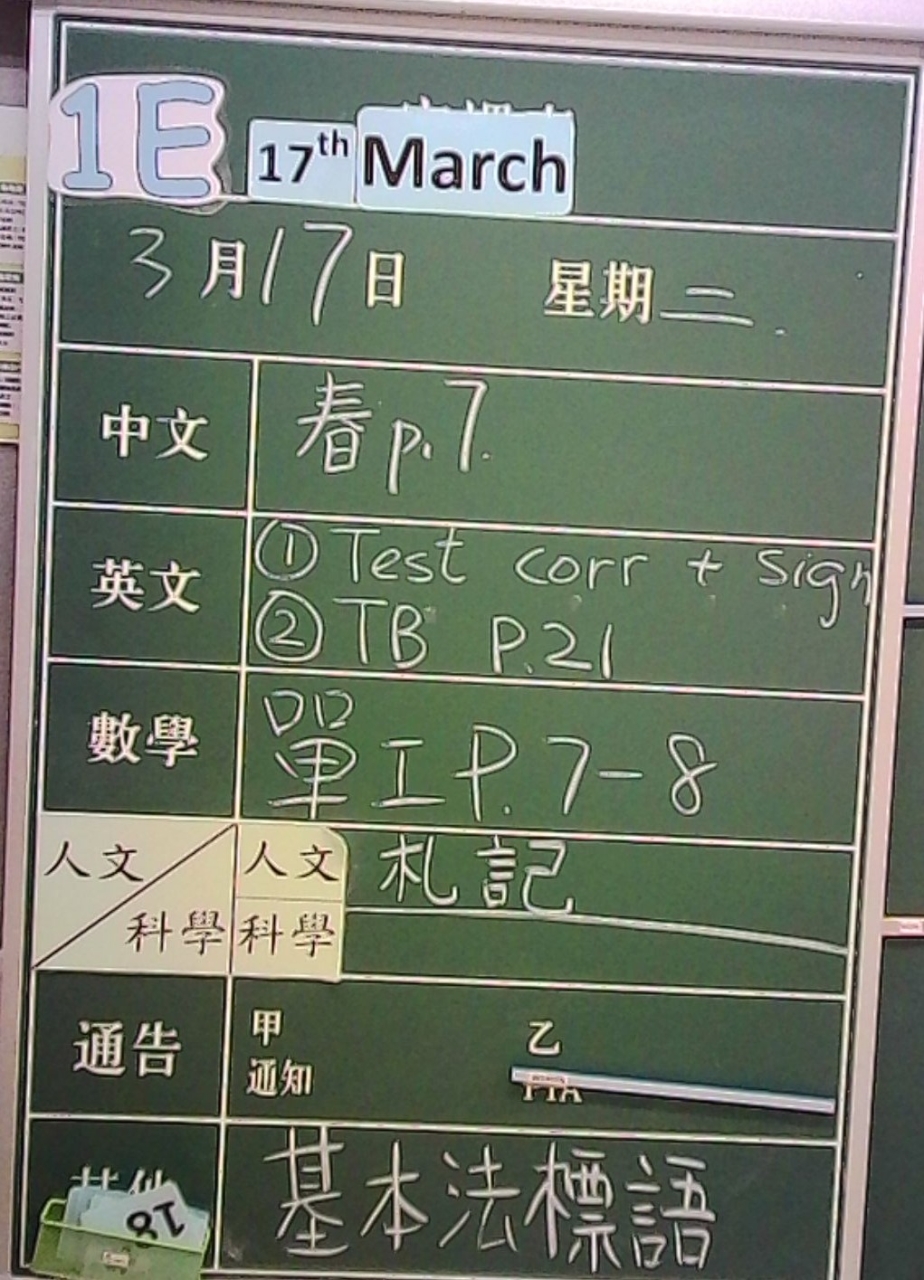 1E
17th March
3月17日 星期二
中文 春p.7.
英文 ① Test corr + sign
② TB P.21
數學 單工P.7-8
人文 人文 札記
科學 科學
通告 甲 乙
通知
其他 基本法標語
18